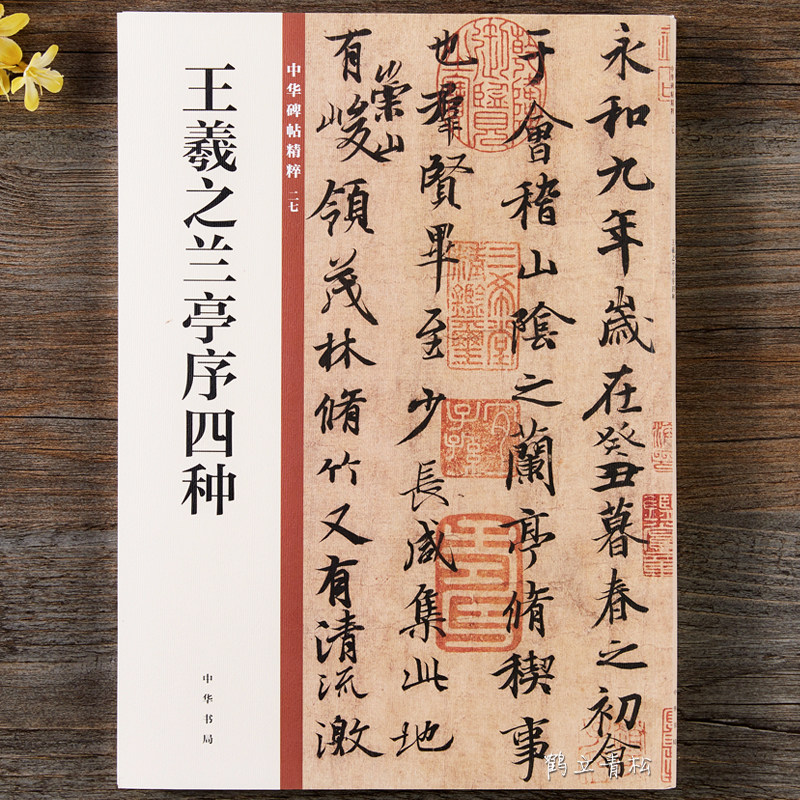 王羲之兰亭序四种
中华碑帖精粹 二七
中华书局
永和九年歲在癸丑暮春之初會
于會稽山陰之蘭亭脩稧事
也羣賢畢至少長咸集此地
有崇山峻領茂林脩竹又有清流激
鹤立青松